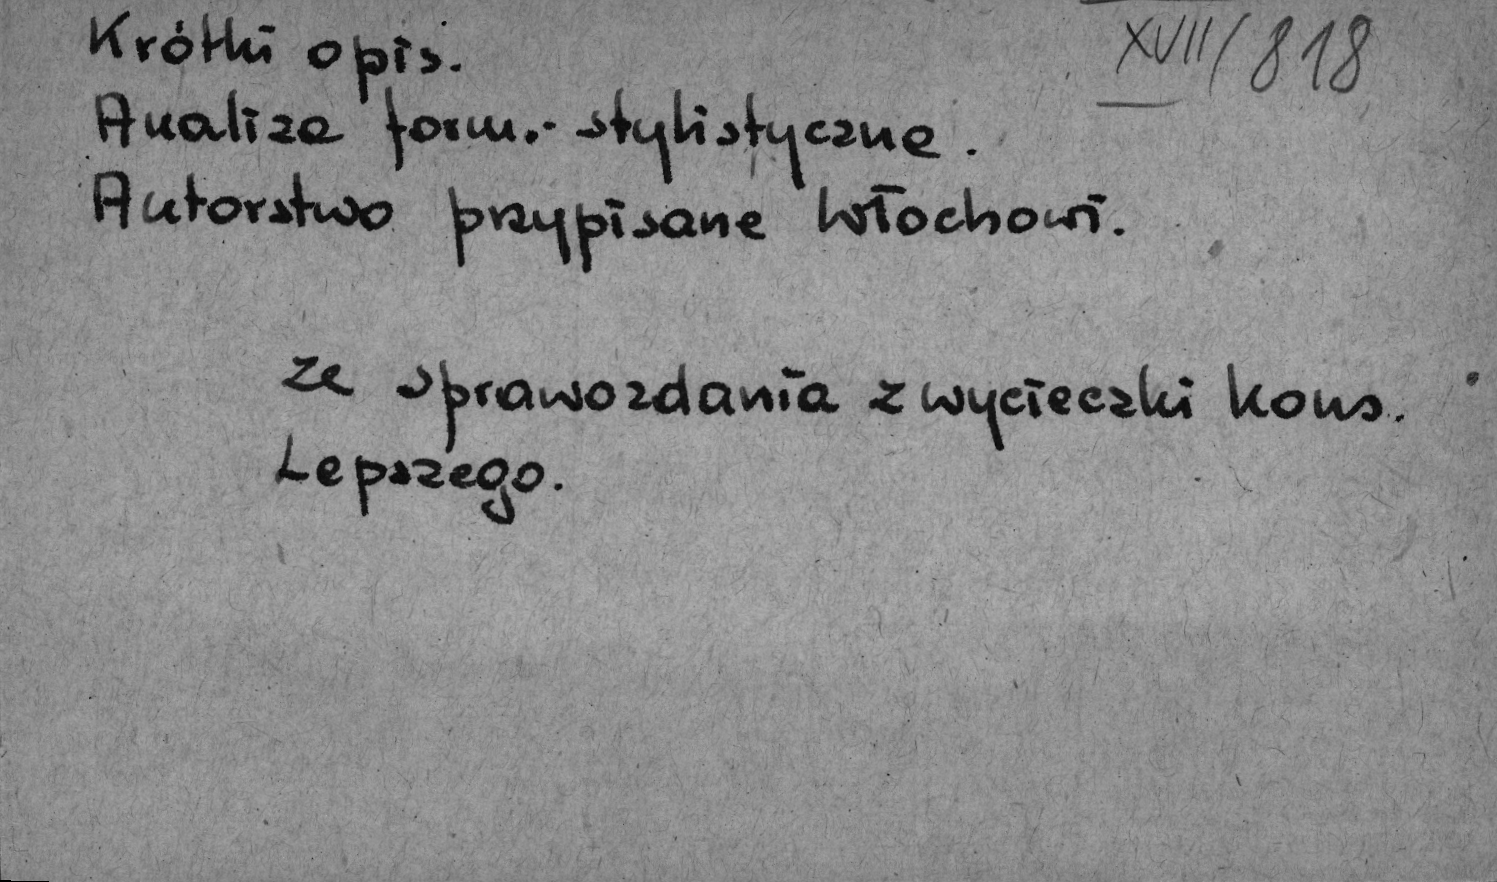 XVII/818
Krótki opis.
Analiza form.-stylistyczna.
Autorstwo przypisane Włochowi.
ze sprawozdania z wycieczki kons.
Lepszego.